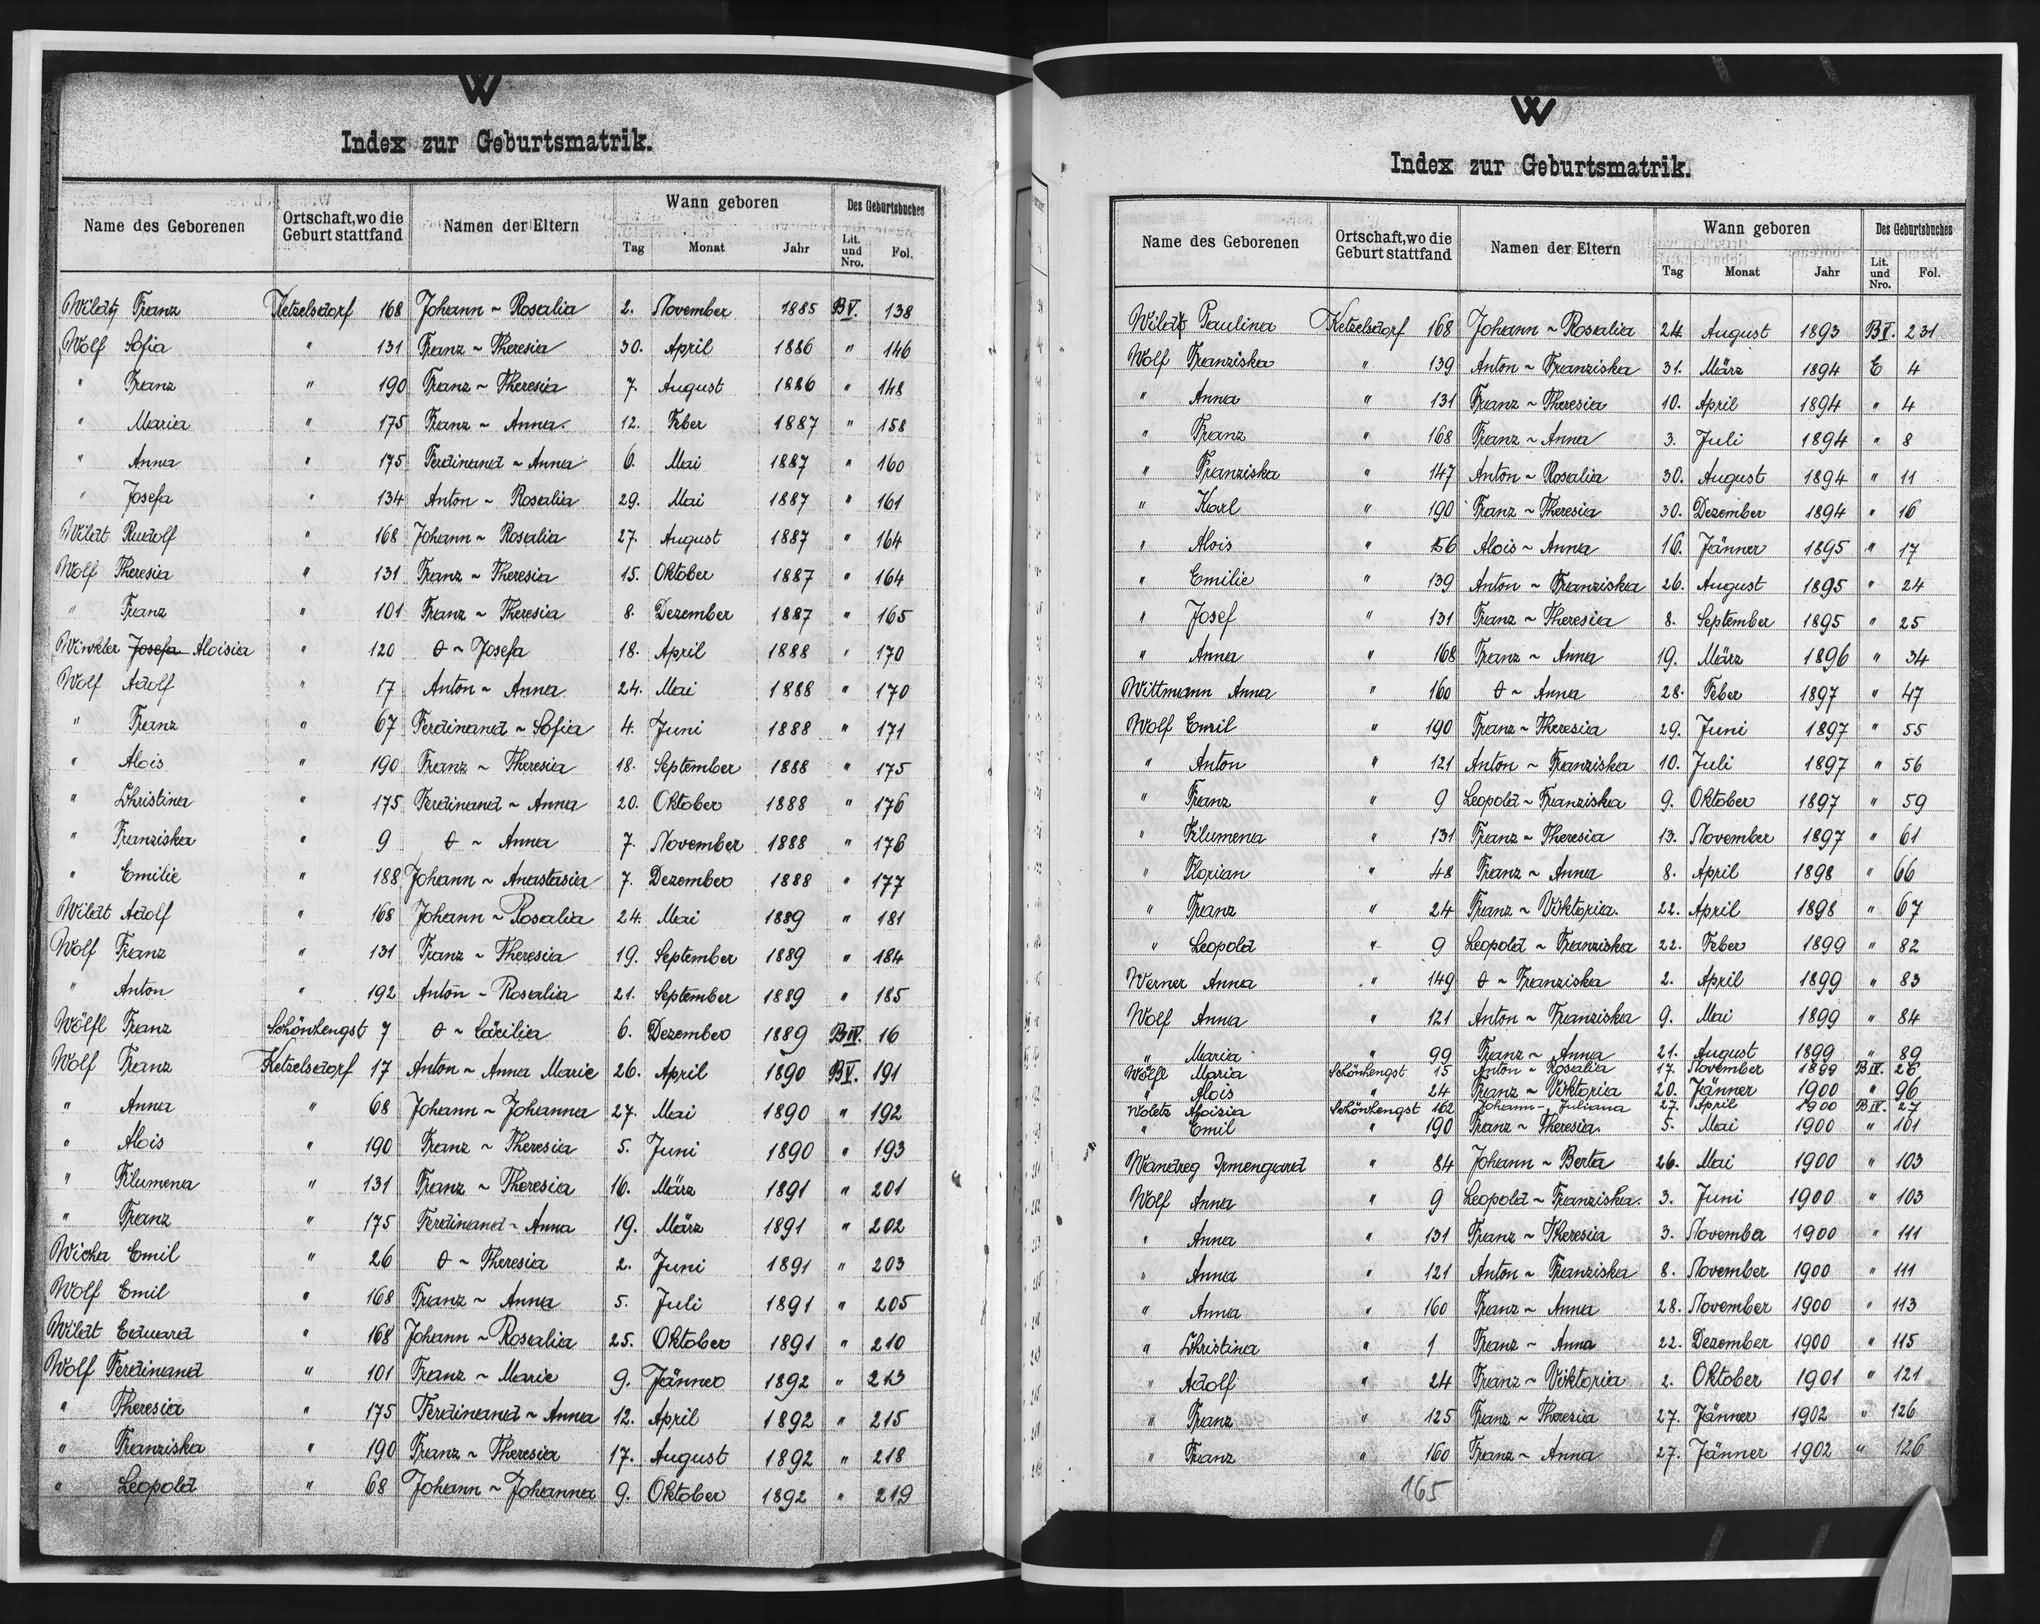 W
Index zur Geburtsmatrik.
Name des Geborenen | Ortschaft, wo die Geburt stattfand | Namen der Eltern | Wann geboren | Des Geburtsbuches
Tag | Monat | Jahr | Lit. und Nro. | Fol.
Wildt Franz Ketzelsdorf 168 Johann ~ Rosalia 2. November 1885 B V. 138
Wolf Sofia " 131 Franz ~ Theresia 30. April 1886 " 146
" Franz " 190 Franz ~ Theresia 7. August 1886 " 148
" Maria " 175 Franz ~ Anna 12. Feber 1887 " 158
" Anna " 175 Ferdinand ~ Anna 6. Mai 1887 " 160
" Josefa " 134 Anton ~ Rosalia 29. Mai 1887 " 161
Wildt Rudolf " 168 Johann ~ Rosalia 27. August 1887 " 164
Wolf Theresia " 131 Franz ~ Theresia 15. Oktober 1887 " 164
" Franz " 101 Franz ~ Theresia 8. Dezember 1887 " 165
Winkler Josefa Aloisia " 120 o ~ Josefa 18. April 1888 " 170
Wolf Adolf " 17 Anton ~ Anna 24. Mai 1888 " 170
" Franz " 67 Ferdinand ~ Sofia 4. Juni 1888 " 171
" Alois " 190 Franz ~ Theresia 18. September 1888 " 175
" Christina " 175 Ferdinand ~ Anna 20. Oktober 1888 " 176
" Franziska " 9 o ~ Anna 7. November 1888 " 176
" Emilie " 188 Johann ~ Anastasia 7. Dezember 1888 " 177
Wildt Adolf " 168 Johann ~ Rosalia 24. Mai 1889 " 181
Wolf Franz " 131 Franz ~ Theresia 19. September 1889 " 184
" Anton " 192 Anton ~ Rosalia 21. September 1889 " 185
Wölfl Franz Schönhengst 7 o ~ Cäcilia 6. Dezember 1889 B IV. 16
Wolf Franz Ketzelsdorf 17 Anton ~ Anna Marie 26. April 1890 B V. 191
" Anna " 68 Johann ~ Johanna 27. Mai 1890 " 192
" Alois " 190 Franz ~ Theresia 5. Juni 1890 " 193
" Filumena " 131 Franz ~ Theresia 16. März 1891 " 201
" Franz " 175 Ferdinand ~ Anna 19. März 1891 " 202
Wicha Emil " 26 o ~ Theresia 2. Juni 1891 " 203
Wolf Emil " 168 Franz ~ Anna 5. Juli 1891 " 205
Wildt Eduard " 168 Johann ~ Rosalia 25. Oktober 1891 " 210
Wolf Ferdinand " 101 Franz ~ Marie 9. Jänner 1892 " 213
" Theresia " 175 Ferdinand ~ Anna 12. April 1892 " 215
" Franziska " 190 Franz ~ Theresia 17. August 1892 " 218
" Leopold " 68 Johann ~ Johanna 9. Oktober 1892 " 219
W
Index zur Geburtsmatrik.
Name des Geborenen | Ortschaft, wo die Geburt stattfand | Namen der Eltern | Wann geboren | Des Geburtsbuches
Tag | Monat | Jahr | Lit. und Nro. | Fol.
Wildt Paulina Ketzelsdorf 168 Johann ~ Rosalia 24. August 1893 B V. 231
Wolf Franziska " 139 Anton ~ Franziska 31. März 1894 E 4
" Anna " 131 Franz ~ Theresia 10. April 1894 " 4
" Franz " 168 Franz ~ Anna 3. Juli 1894 " 8
" Franziska " 147 Anton ~ Rosalia 30. August 1894 " 11
" Karl " 190 Franz ~ Theresia 30. Dezember 1894 " 16
" Alois " 156 Alois ~ Anna 16. Jänner 1895 " 17
" Emilie " 139 Anton ~ Franziska 26. August 1895 " 24
" Josef " 131 Franz ~ Theresia 8. September 1895 " 25
" Anna " 168 Franz ~ Anna 19. März 1896 " 34
Wittmann Anna " 160 o ~ Anna 28. Feber 1897 " 47
Wolf Emil " 190 Franz ~ Theresia 29. Juni 1897 " 55
" Anton " 121 Anton ~ Franziska 10. Juli 1897 " 56
" Franz " 9 Leopold ~ Franziska 9. Oktober 1897 " 59
" Filumena " 131 Franz ~ Theresia 13. November 1897 " 61
" Florian " 48 Franz ~ Anna 8. April 1898 " 66
" Franz " 24 Franz ~ Viktoria 22. April 1898 " 67
" Leopold " 9 Leopold ~ Franziska 22. Feber 1899 " 82
Werner Anna " 149 o ~ Franziska 2. April 1899 " 83
Wolf Anna " 121 Anton ~ Franziska 9. Mai 1899 " 84
" Maria " 99 Franz ~ Anna 21. August 1899 " 89
Wölfl Maria Schönhengst 15 Anton ~ Rosalia 17. November 1899 B IV. 26
" Alois " 24 Franz ~ Viktoria 20. Jänner 1900 " 96
Woletz Aloisia Schönhengst 162 Johann ~ Juliana 27. April 1900 B IV. 27
" Emil " 190 Franz ~ Theresia 5. Mai 1900 " 101
Wandreg Irmengard " 84 Johann ~ Berta 26. Mai 1900 " 103
Wolf Anna " 9 Leopold ~ Franziska 3. Juni 1900 " 103
" Anna " 131 Franz ~ Theresia 3. November 1900 " 111
" Anna " 121 Anton ~ Franziska 8. November 1900 " 111
" Anna " 160 Franz ~ Anna 28. November 1900 " 113
" Christina " 1 Franz ~ Anna 22. Dezember 1900 " 115
" Adolf " 24 Franz ~ Viktoria 2. Oktober 1901 " 121
" Franz " 125 Franz ~ Theresia 27. Jänner 1902 " 126
" Franz " 160 Franz ~ Anna 27. Jänner 1902 " 126
165